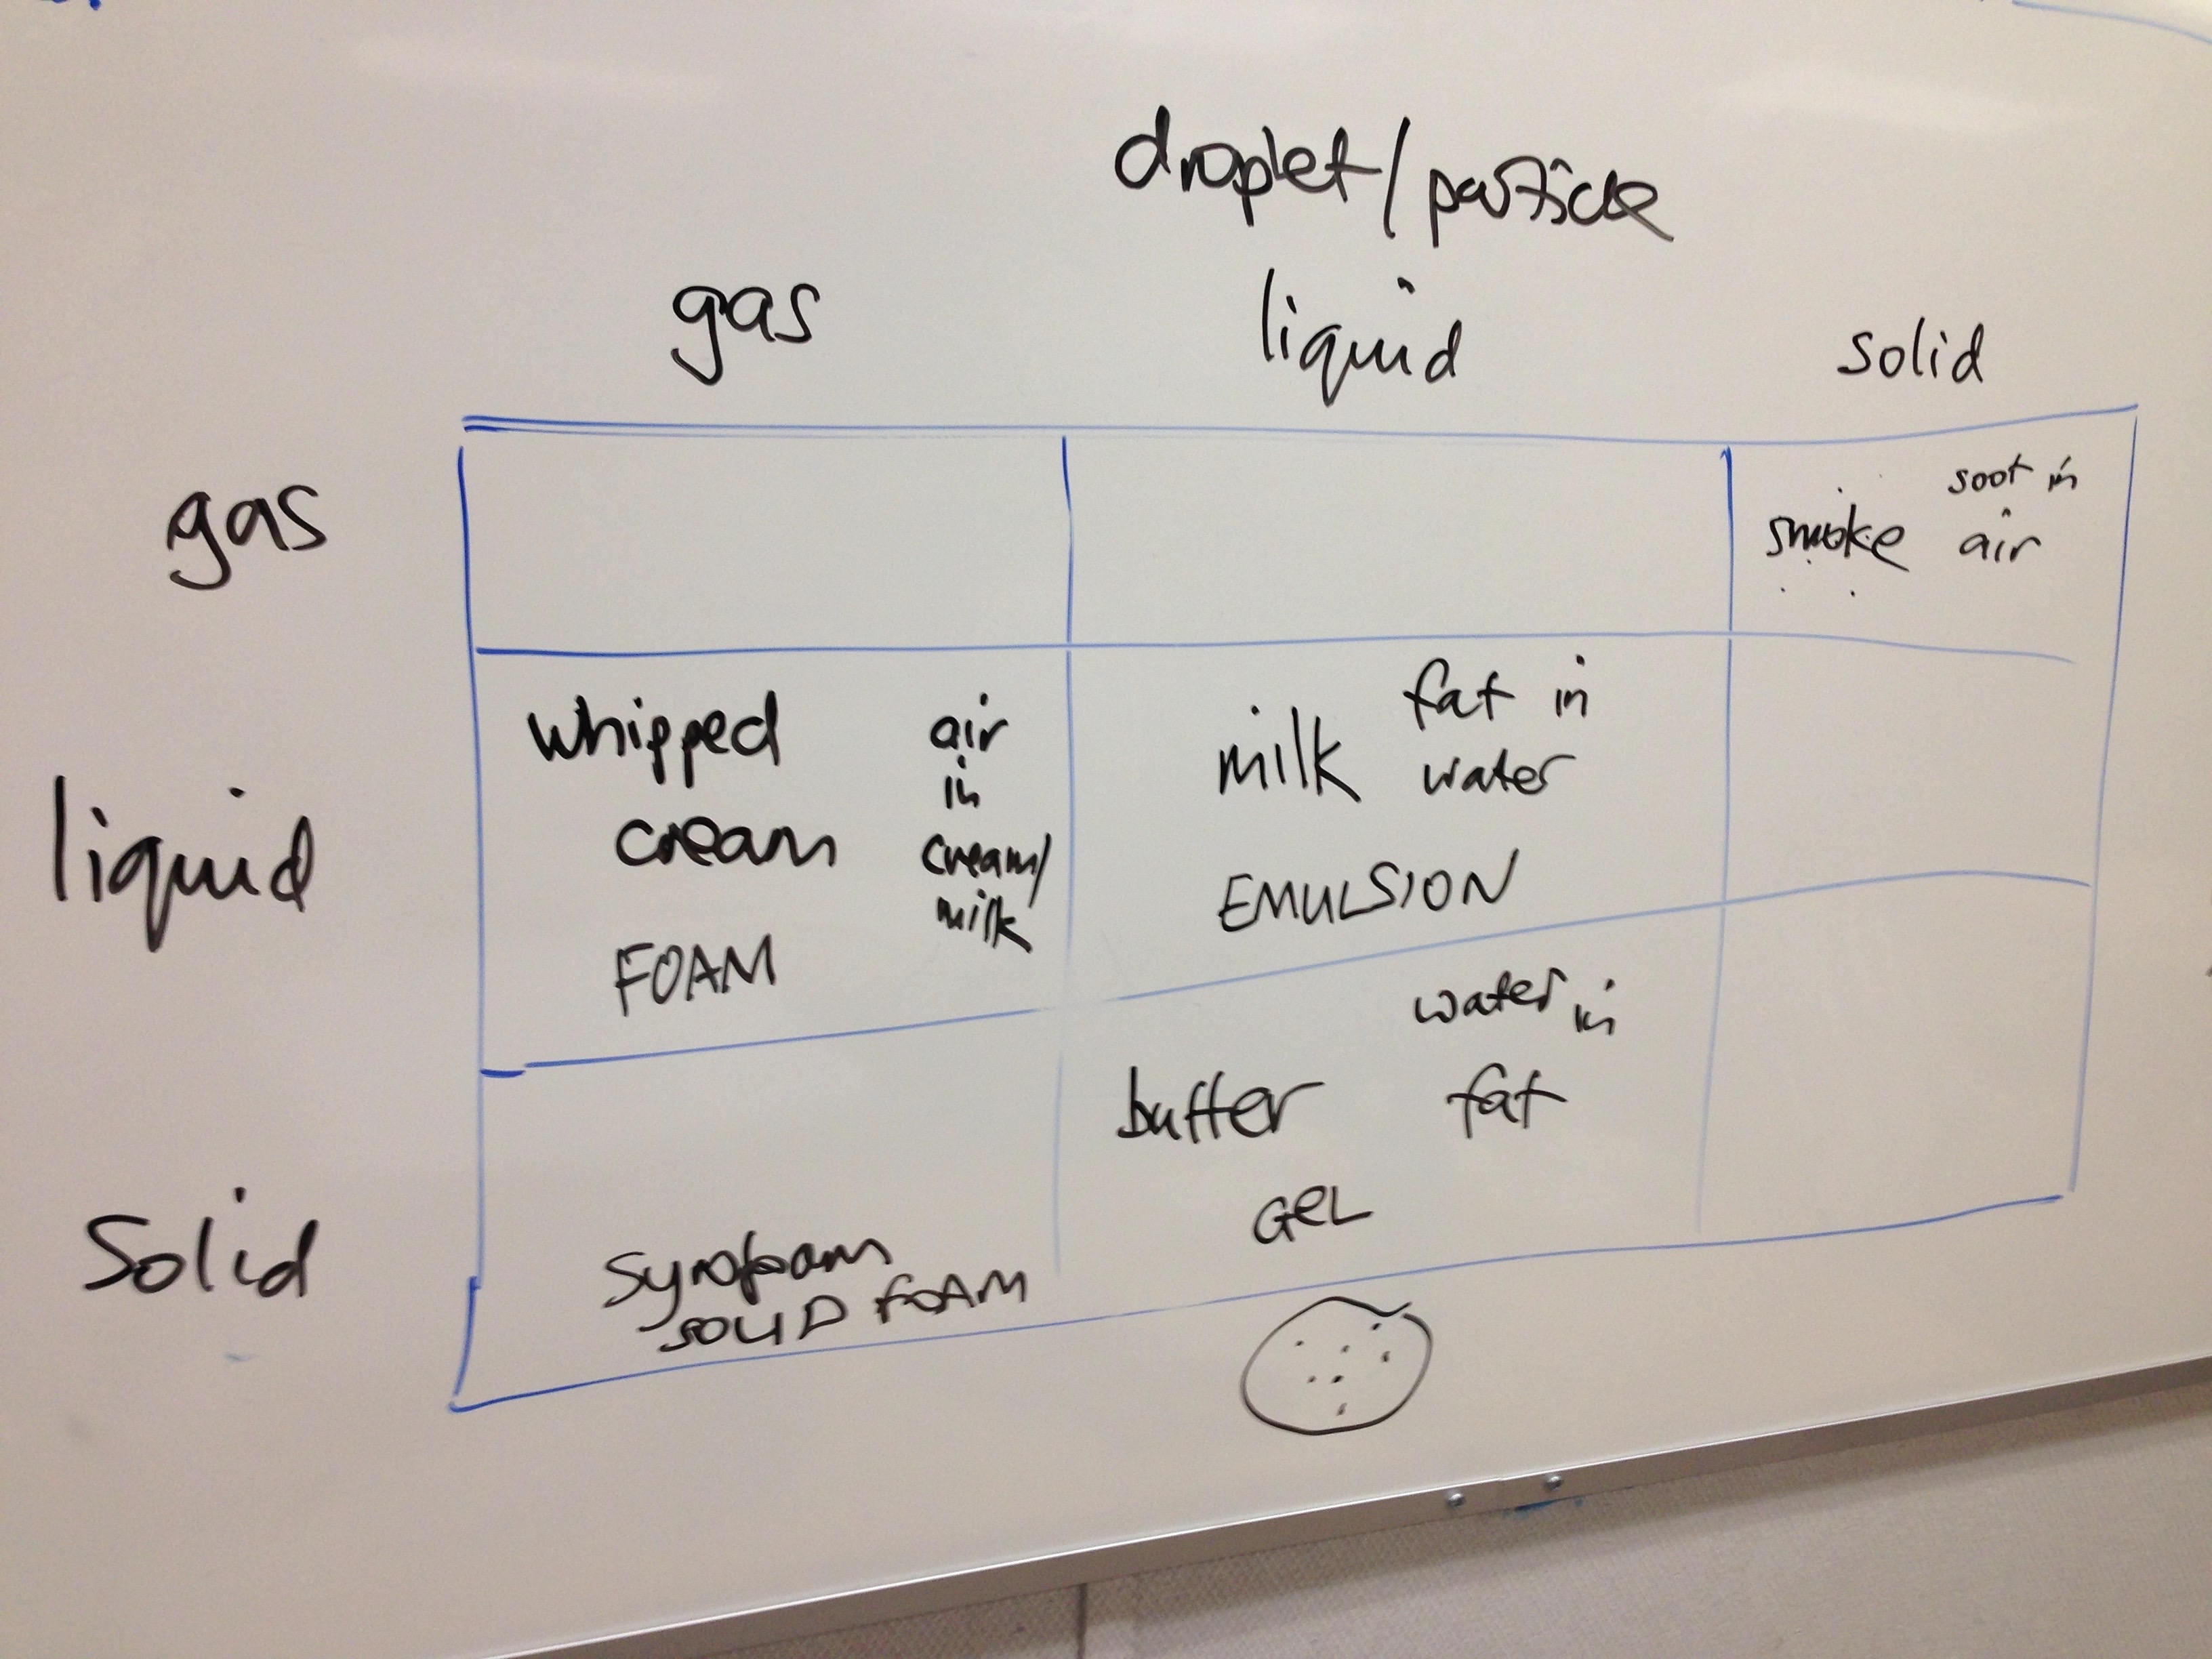 droplet/particle
gas liquid solid
gas
smoke soot in
air
liquid
whipped air
in
cream cream/
milk
FOAM
milk fat in
water
EMULSION
Solid
Syrofoam
SOLID FOAM
butter water in
fat
GEL